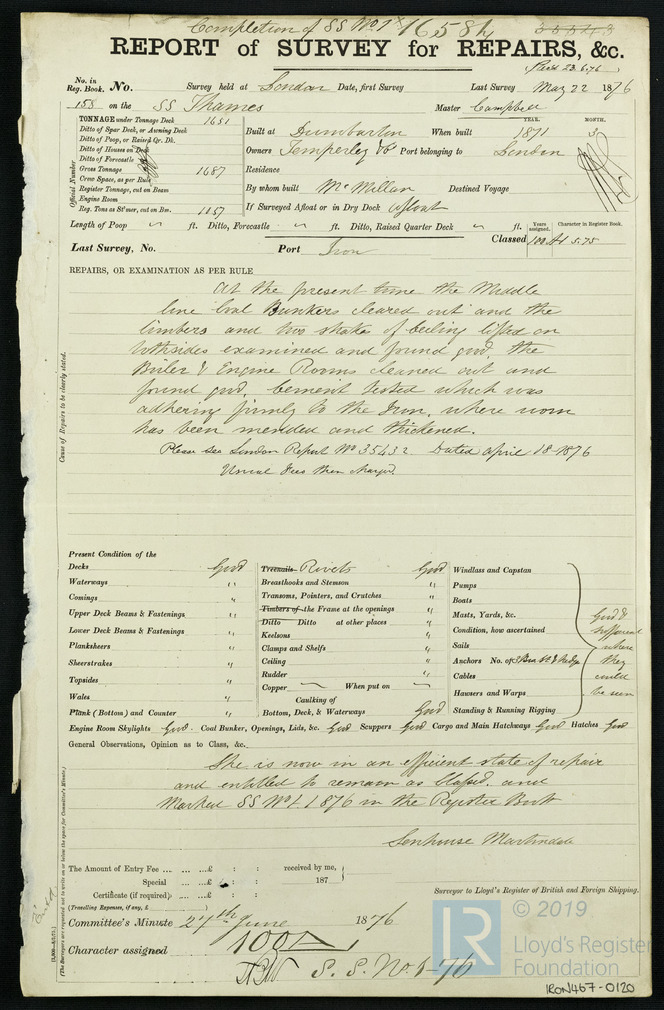 Completion of SS No 1 16584 35543
REPORT of SURVEY for REPAIRS, &c.
Recd 23.6.76
No. in Reg. Book. No. Survey held at London Date, first Survey Last Survey May 22 1876
158 on the SS Thames Master Campbell
TONNAGE under Tonnage Deck 1651
Ditto of Spar Deck, or Awning Deck
Ditto of Poop, or Raised Qr. Dk.
Ditto of Houses on Deck
Ditto of Forecastle
Gross Tonnage 1687
Crew Space, as per Rule
Register Tonnage, cut on Beam
Engine Room
Reg. Tons as St'mer, cut on Bm. 1057
Official Number
YEAR. MONTH.
Built at Dumbarton When built 1871 3
Owners Temperley & Co Port belonging to London
Residence
By whom built McMillan Destined Voyage
If Surveyed Afloat or in Dry Dock Afloat
Length of Poop " ft. Ditto, Forecastle " ft. Ditto, Raised Quarter Deck " ft.
Years assigned. Character in Register Book.
Classed 100 A1 5.75
Last Survey, No. Port Iron
REPAIRS, OR EXAMINATION AS PER RULE
Cause of Repairs to be clearly stated.
At the present time the Middle
line Coal Bunkers cleared out and the
limbers and two strakes of ceiling lifted on
bothsides examined and found good, the
Boiler & Engine Rooms cleaned out and
found good, cement tested which was
adhering firmly to the Iron, where worn
has been mended and thickened.
Please see London Report No 35432 Dated April 18-1876
Usual Fees then charged.
Present Condition of the
Decks Good
Waterways "
Comings "
Upper Deck Beams & Fastenings "
Lower Deck Beams & Fastenings "
Planksheers "
Sheerstrakes "
Topsides "
Wales "
Plank (Bottom) and Counter "
Treenails Rivets Good
Breasthooks and Stemson "
Transoms, Pointers, and Crutches "
Timbers of the Frame at the openings "
Ditto Ditto at other places "
Keelsons "
Clamps and Shelfs "
Ceiling "
Rudder "
Copper When put on
Caulking of
Bottom, Deck, & Waterways Good
Windlass and Capstan
Pumps
Boats
Masts, Yards, &c.
Condition, how ascertained
Sails
Anchors No. of 3 Bow St & Kedge
Cables
Hawsers and Warps
Standing & Running Rigging
Good &
sufficient
where
they
could
be seen
Engine Room Skylights Good. Coal Bunker, Openings, Lids, &c. Good Scuppers Good Cargo and Main Hatchways Good Hatches Good
General Observations, Opinion as to Class, &c.
She is now in an efficient state of repair
and entitled to remain as Classed. and
Marked SS No 1. 1876 in the Register Book
Senhouse Martindale
The Amount of Entry Fee ... ... £ : : received by me,
Special ... ... £ : : 187
Certificate (if required) ... £ : :
(Travelling Expenses, if any, £ )
Surveyor to Lloyd's Register of British and Foreign Shipping.
Committee's Minute 27th June 1876
Character assigned 100A
S. S. No. 1-76
(The Surveyors are requested not to write on or below the space for Committee's Minute.)
© 2019
LR
Lloyd's Register
Foundation
IRON467-0120